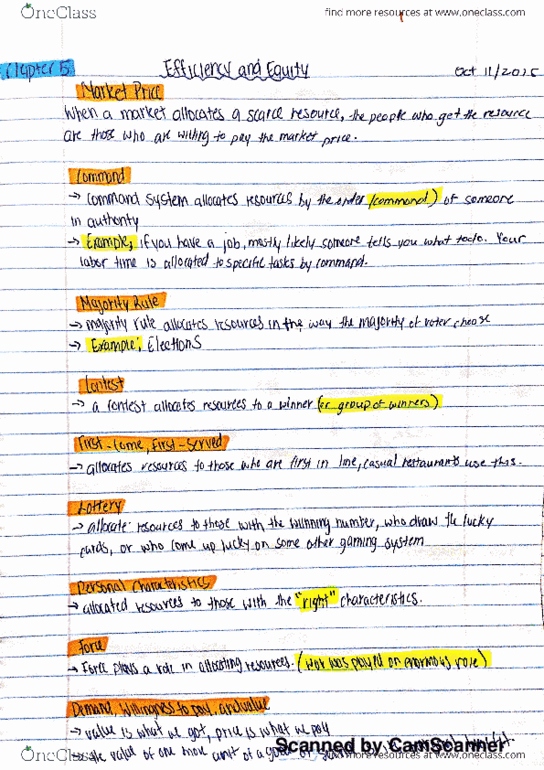 OneClass
find more resources at www.oneclass.com
Chapter 5
Efficiency and Equity
Oct 11/2015
Market Price
When a market allocates a scarce resource, the people who get the resource
are those who are willing to pay the market price.
Command
→ command system allocates resources by the order (command) of someone
in authority
→ Example, if you have a job, mostly likely someone tells you what to do. Your
labor time is allocated to specific tasks by command.
Majority Rule
→ majority rule allocates resources in the way the majority of voter choose
→ Example: Elections
Contest
→ a contest allocates resources to a winner (or group of winners)
First-Come, First-Served
→ allocates resources to those who are first in line, casual restaurants use this.
Lottery
→ allocate resources to those with the winning number, who draw the lucky
cards, or who come up lucky on some other gaming system
Personal Characteristics
→ allocated resources to those with the "right" characteristics.
Force
→ Force plays a role in allocating resources. (War was played an enormous role)
Demand, Willingness to pay, and value
→ value is what we got, price is what we pay
value of one more unit of a good or
Scanned by CamScanner
OneClass
find more resources at www.oneclass.com